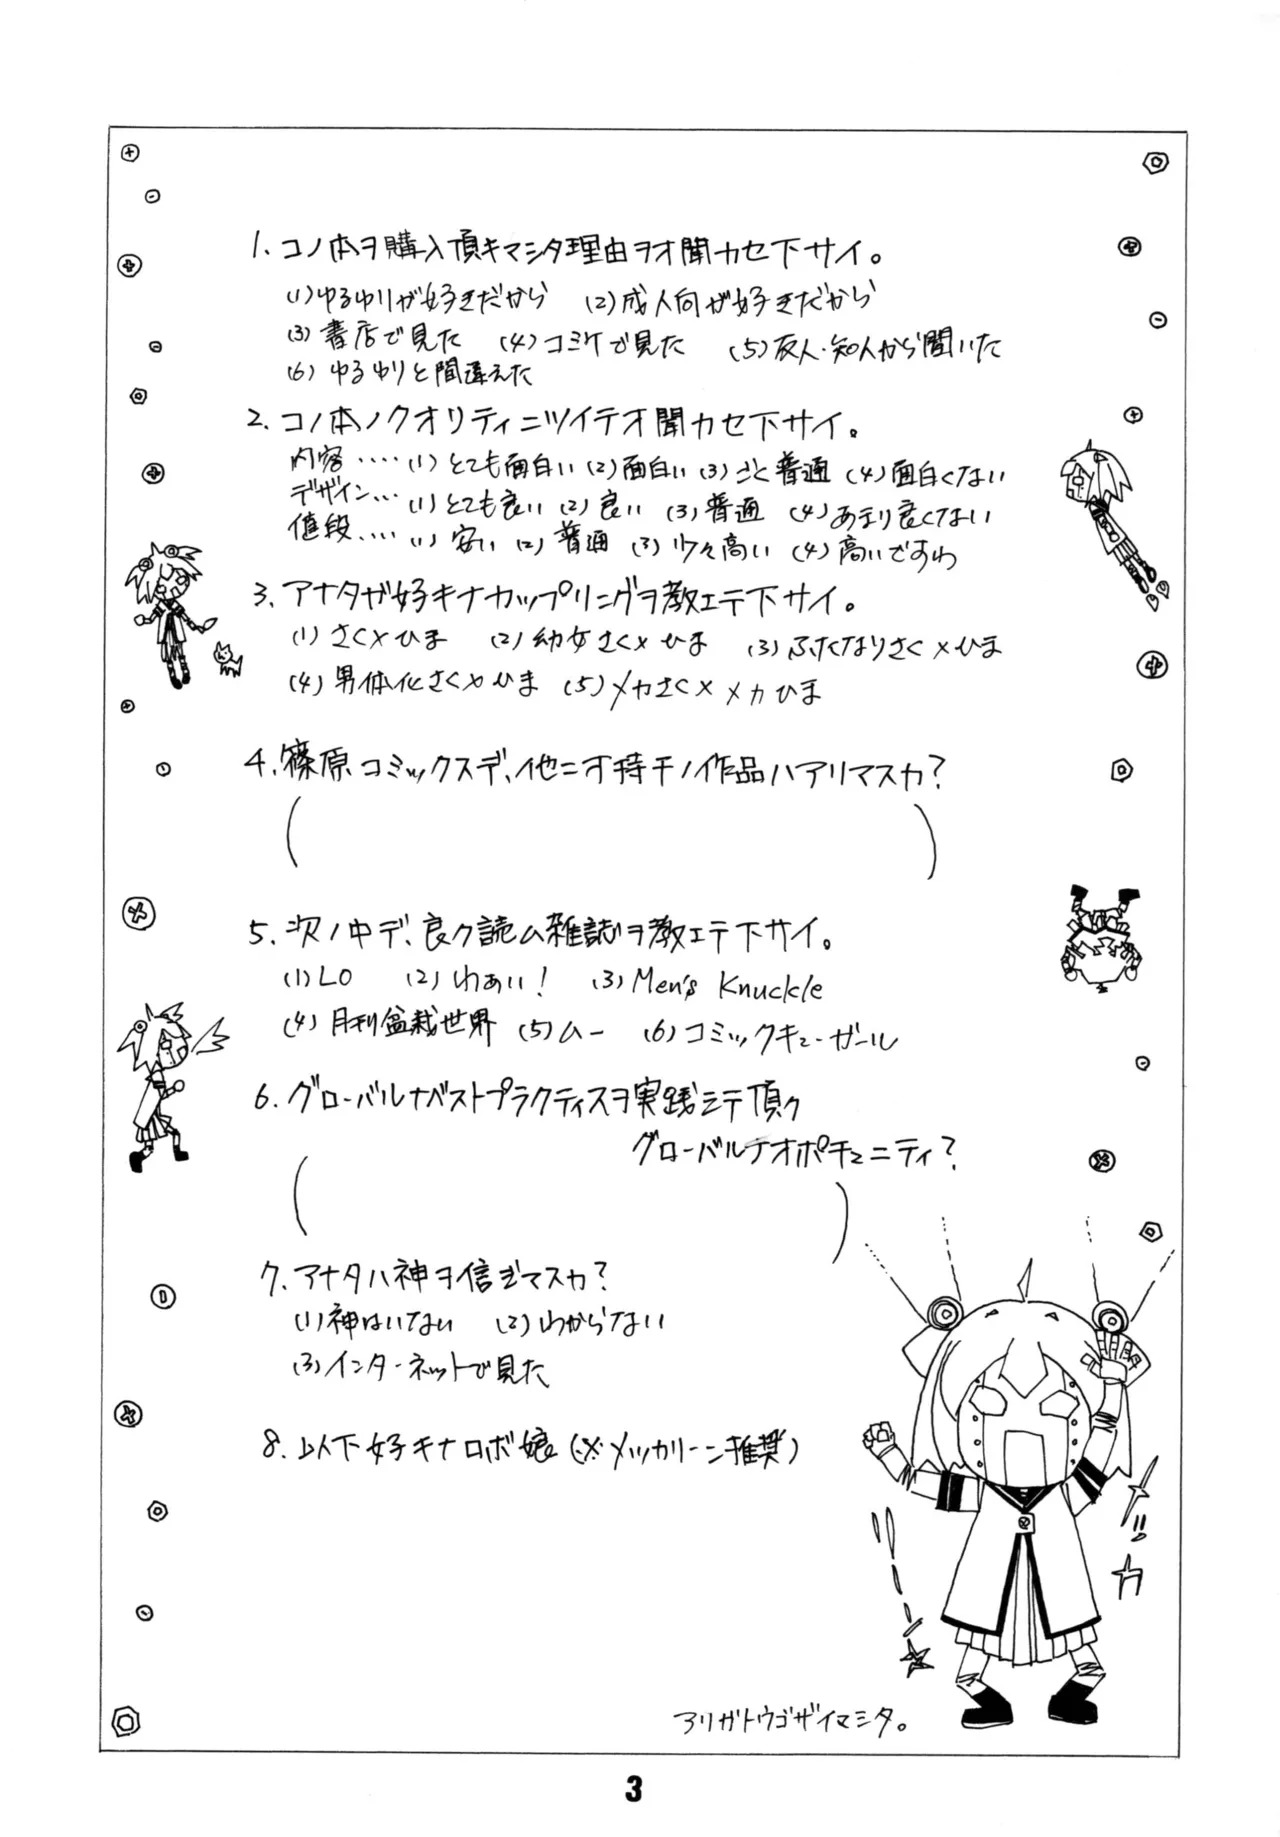 1. コノ本ヲ購入頂キマシタ理由ヲオ聞カセ下サイ。
(1)ゆるゆりが好きだから (2)成人向が好きだから
(3)書店で見た (4)コミケで見た (5)友人・知人から聞いた
(6)ゆるゆりと間違えた
2. コノ本ノクオリティニツイテオ聞カセ下サイ。
内容‥‥(1)とても面白い(2)面白い(3)ごく普通(4)面白くない
デザイン…(1)とても良い(2)良い(3)普通(4)あまり良くない
値段‥‥(1)安い(2)普通(3)少々高い(4)高いですわ
3. アナタガ好キナカップリングヲ教エテ下サイ。
(1)さく×ひま (2)幼女さく×ひま (3)ふたなりさく×ひま
(4)男体化さく×ひま (5)メカさく×メカひま
4. 篠原コミックスデ、他ニオ持チノ作品ハアリマスカ?
( )
5. 次ノ中デ、良ク読ム雑誌ヲ教エテ下サイ。
(1)LO (2)わぁい! (3)Men's Knuckle
(4)月刊盆栽世界 (5)ムー (6)コミックキューガール
6. グローバルナベストプラクティスヲ実践シテ頂ク
グローバルナオポチュニティ?
( )
7. アナタハ神ヲ信ジマスカ?
(1)神はいない (2)わからない
(3)インターネットで見た
8. 以下好キナロボ娘(※メッカリーン推奨)
メガッ
アリガトウゴザイマシタ。
3